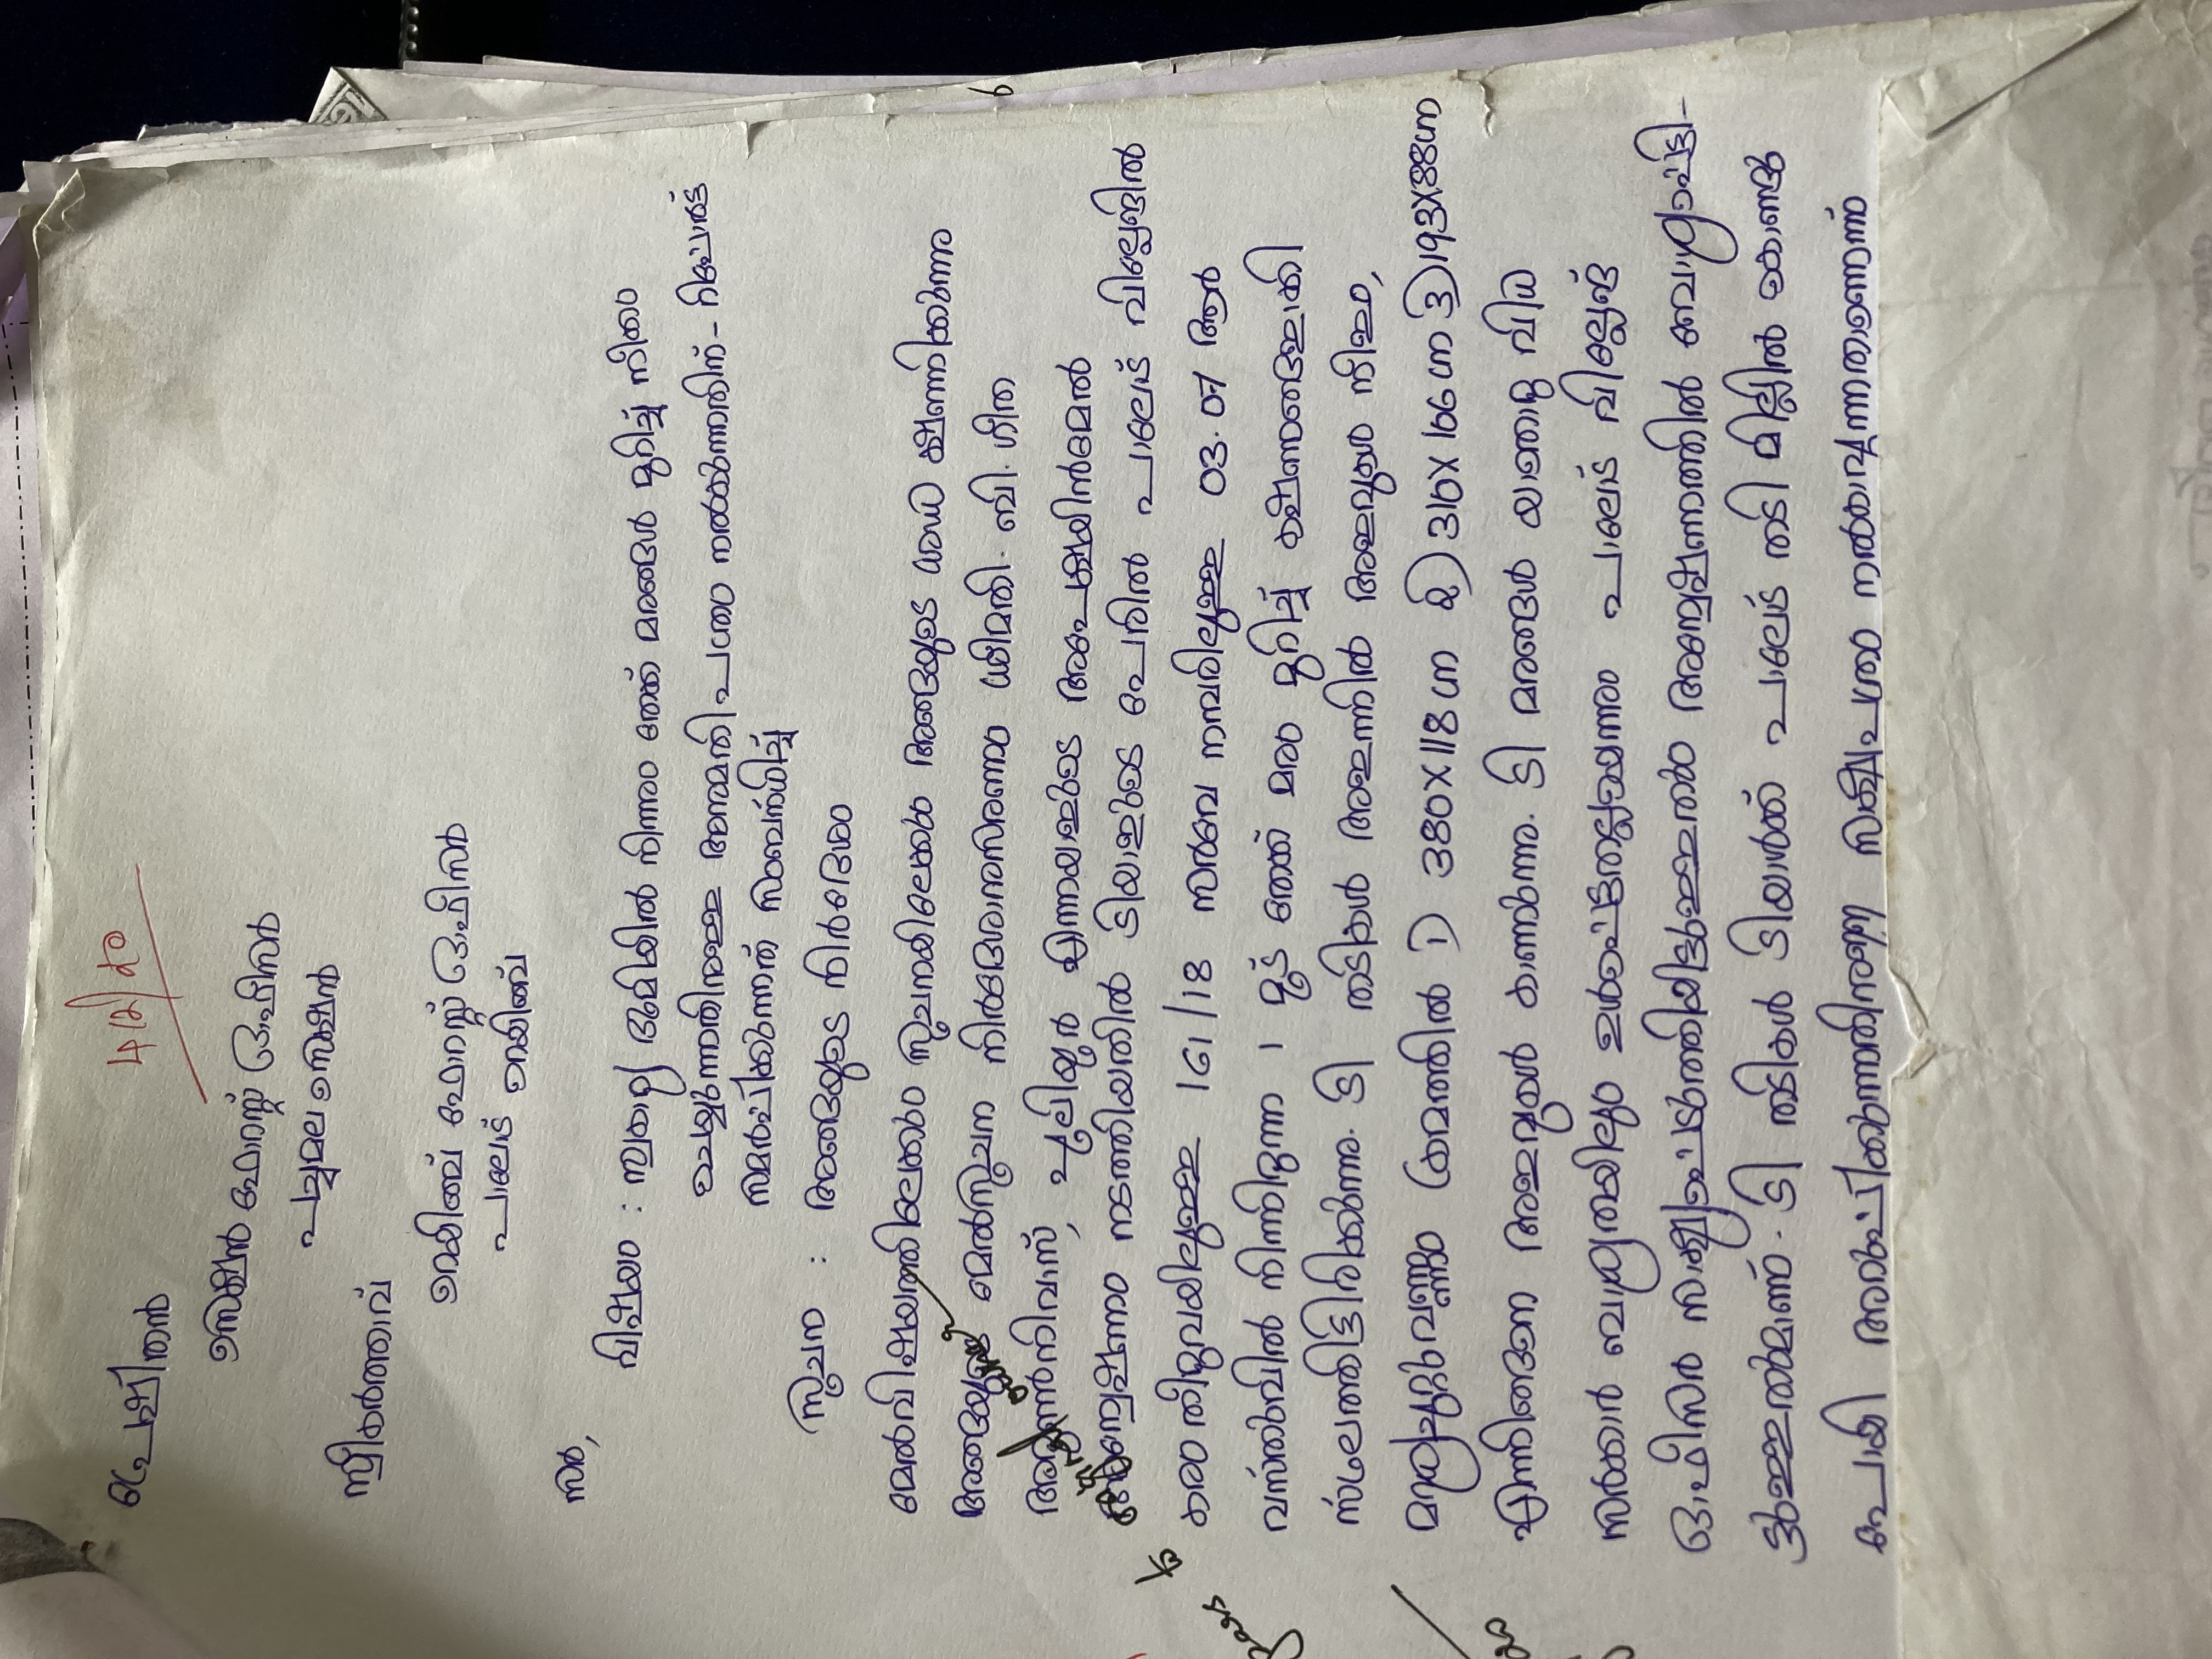 പ്രേഷിതൻ
സെക്ഷൻ ഫോറസ്റ്റ് ഓഫീസർ
പച്ചമല സെക്ഷൻ
സ്വീകർത്താവ്
റെയിഞ്ച് ഫോറസ്റ്റ് ഓഫീസർ
പാലോട് റെയിഞ്ച്
സർ,
വിഷയം : സ്വകാര്യ ഭൂമിയിൽ നിന്നും തേക്ക് മരങ്ങൾ മുറിച്ച് നീക്കം
ചെയ്യുന്നതിനുള്ള അനുമതി പത്രം നൽകുന്നതിന് - റിപ്പോർട്ട്
സമർപ്പിക്കുന്നത് സംബന്ധിച്ച്
സൂചന : അങ്ങയുടെ നിർദേശം
മേൽവിഷയത്തിലേക്കും സൂചനയിലേക്കും അങ്ങയുടെ ശ്രദ്ധ ക്ഷണിക്കുന്നു
അങ്ങയുടെ മേൽസൂചന നിർദേശാനുസരണം ശ്രീമതി. ബി. ഗീത
നിവാസ്, പുലിയൂർ എന്നയാളുടെ അപേക്ഷയിൻമേൽ
അന്വേഷണം നടത്തിയതിൽ ടിയാളുടെ പേരിൽ പാലോട് വില്ലേജിൽ
pass to original owner
കരം തീരുവയിലുള്ള 161/18 സർവെ നമ്പരിലുള്ള 03.07 ആർ
വസ്തുവിൽ നിന്നിരുന്ന 1 മൂട് തേക്ക് മരം മുറിച്ച് കഷണങ്ങളാക്കി
സ്ഥലത്തിട്ടിരിക്കുന്നു. ടി തടികൾ അളന്നിൽ അളവുകൾ നീളം,
മദ്ധ്യചുറ്റുവണ്ണം ക്രമത്തിൽ 1) 380X118 cm 2) 310X106 cm 3) 193X88cm
എന്നിങ്ങനെ അളവുകൾ കാണുന്നു. ടി മരങ്ങൾ യാതൊരു വിധ
സർക്കാർ ബാധ്യതയിലും ഉൾപ്പെട്ടതല്ലായെന്നും പാലോട് വില്ലേജ്
ഓഫീസർ സാക്ഷ്യപ്പെടുത്തിയിട്ടുള്ളതും അന്വേഷണത്തിൽ ബോധ്യപ്പെട്ടി-
ട്ടുള്ളതുമാണ്. ടി തടികൾ ടിയാൾക്ക് പാലോട് തടി മില്ലിൽ കൊണ്ടു
പോയി അറുപ്പിക്കുന്നതിനുള്ള സാക്ഷ്യപത്രം നൽകാവുന്നതാണെന്ന്